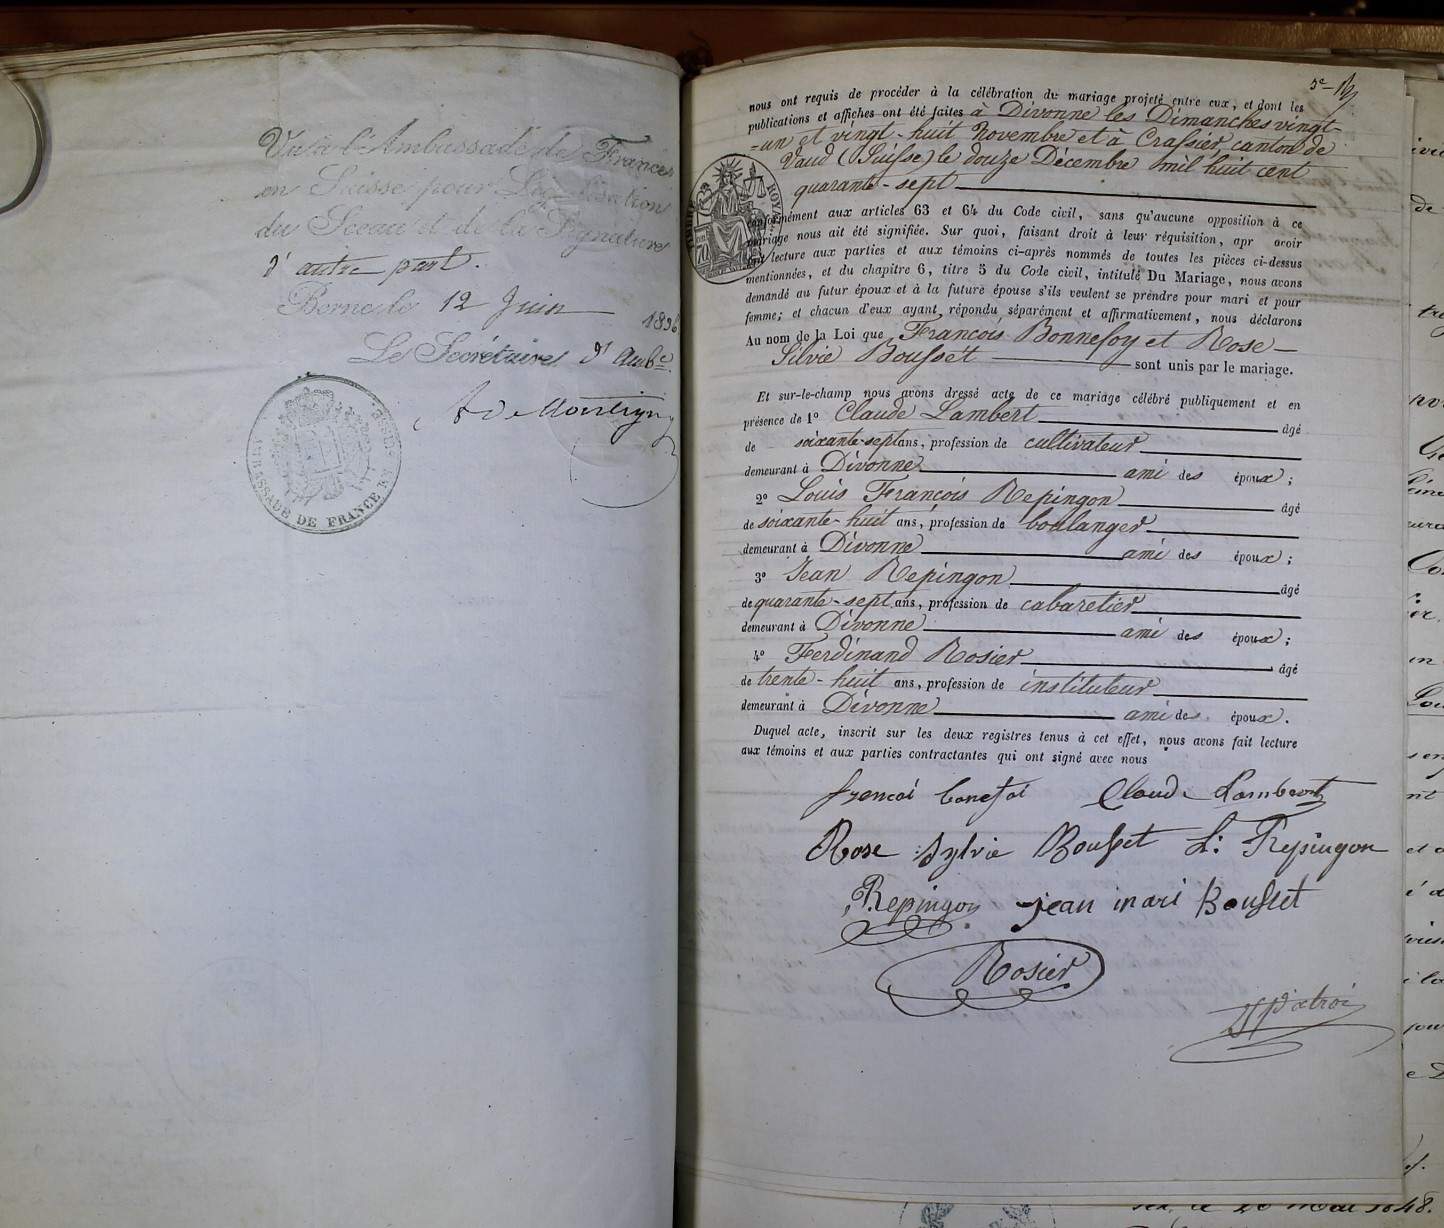 Vu à l'Ambassade de France
en Suisse pour Légalisation
du Sceau et de la Signature
d'autre part.
Berne le 12 Juin 1896
Le Secrétaire d'Ambe
AMBASSADE DE FRANCE EN SUISSE
5e
nous ont requis de procéder à la célébration du mariage projeté entre eux, et dont les
publications et affiches ont été faites à Divonne les Dimanches vingt-
=un et vingt-huit Novembre et à Crassier, canton de
Vaud (Suisse) le douze Décembre mil huit cent
quarante-sept
TIMBRE ROYAL
70
conformément aux articles 63 et 64 du Code civil, sans qu'aucune opposition à ce
mariage nous ait été signifiée. Sur quoi, faisant droit à leur réquisition, apr avoir
ont lecture aux parties et aux témoins ci-après nommés de toutes les pièces ci-dessus
mentionnées, et du chapitre 6, titre 5 du Code civil, intitulé Du Mariage, nous avons
demandé au futur époux et à la future épouse s'ils veulent se prendre pour mari et pour
femme; et chacun d'eux ayant répondu séparément et affirmativement, nous déclarons
Au nom de la Loi que François Bonnefoy et Rose-
Silvie Bousset sont unis par le mariage.
Et sur-le-champ nous avons dressé acte de ce mariage célébré publiquement et en
présence de 1º Claude Lambert âgé
de soixante-sept ans, profession de cultivateur
demeurant à Divonne ami des époux;
2º Louis François Repingon âgé
de soixante-huit ans, profession de boulanger
demeurant à Divonne ami des époux;
3º Jean Repingon âgé
de quarante-sept ans, profession de cabaretier
demeurant à Divonne ami des époux;
4º Ferdinand Rosier âgé
de trente-huit ans, profession de instituteur
demeurant à Divonne ami des époux.
Duquel acte, inscrit sur les deux registres tenus à cet effet, nous avons fait lecture
aux témoins et aux parties contractantes qui ont signé avec nous
Claude Lambert
Rose Sylvie Bousset L: Repingon
Repingon jean mari Bousset
Rosier